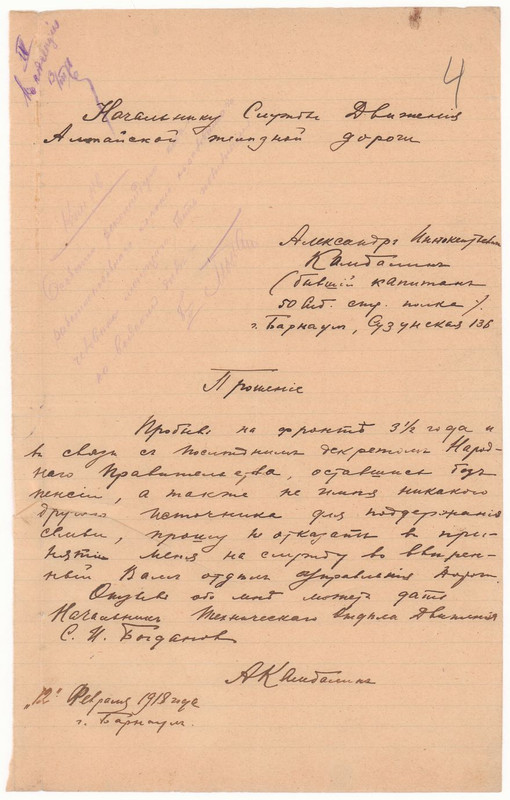 4
Начальнику Службы Движенія
Алтайской железной дороги
Александръ Иннокентьевичъ
Камбалинъ
(бывшій капитанъ
50 Сиб. стр. полка).
г. Барнаул, Сузунская 136
Прошеніе
Пробывъ на фронтѣ 3½ года и
въ связи съ последнимъ декретомъ Народ-
наго Правительства, оставшись безъ
пенсіи, а также не имѣя никакого
другого источника для поддержанія
семьи, прошу не отказать въ при-
нятіи меня на службу во ввѣрен-
ный Вамъ отдѣлъ Управленія Дороги.
Отзывъ обо мнѣ можетъ дать
Начальникъ Техническаго отдѣла Движенія
С. И. Богдановъ
АКамбалинъ
"12" Февраля 1918 года
г. Барнаул.